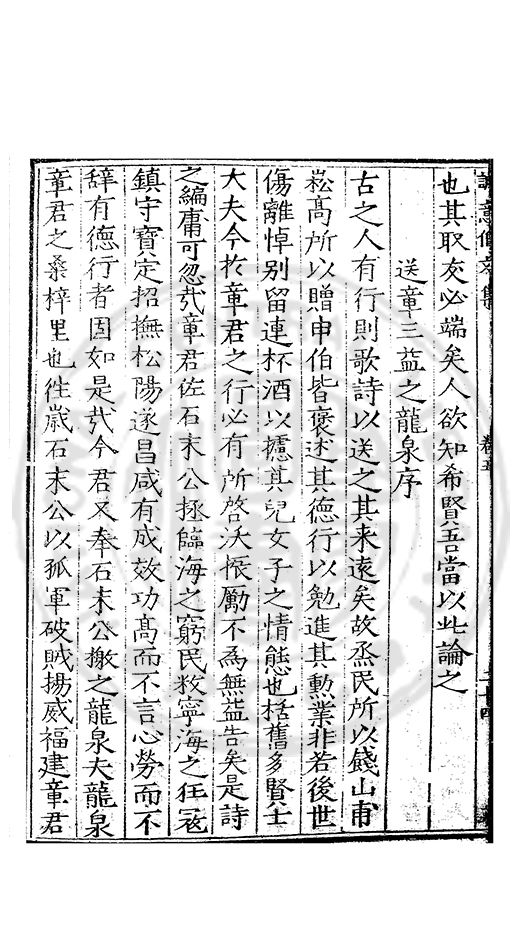 誠意伯文集 卷五 二十四
也其取友必端矣人欲知希賢吾當以此論之
送章三益之龍泉序
古之人有行則歌詩以送之其来遠矣故烝民所以餞山甫
崧髙所以贈申伯皆褒述其德行以勉進其勲業非若後世
傷離悼别留連杯酒以攄其兒女子之情態也栝舊多賢士
大夫今扵章君之行必有所啓沃恢勵不為無益告矣是詩
之編庸可忽㢤章君佐石末公拯臨海之窮民救寧海之狂寇
鎮守寳定招撫松陽遂昌咸有成效功髙而不言心勞而不
辭有德行者固如是㢤今君又奉石末公檄之龍泉夫龍泉
章君之桑梓里也徃歲石末公以孤軍破賊揚威福建章君